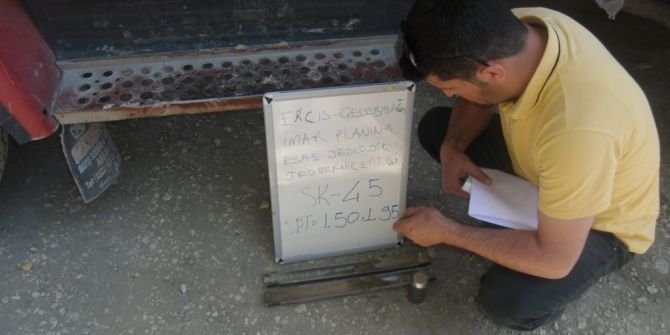 ERCİŞ-ÇELEBİBAĞ
İMAR PLANINA
ESAS JEOLOJİK
JEOTEKNİK ETÜT İŞİ
SK-45
SPT=1.50-1.95